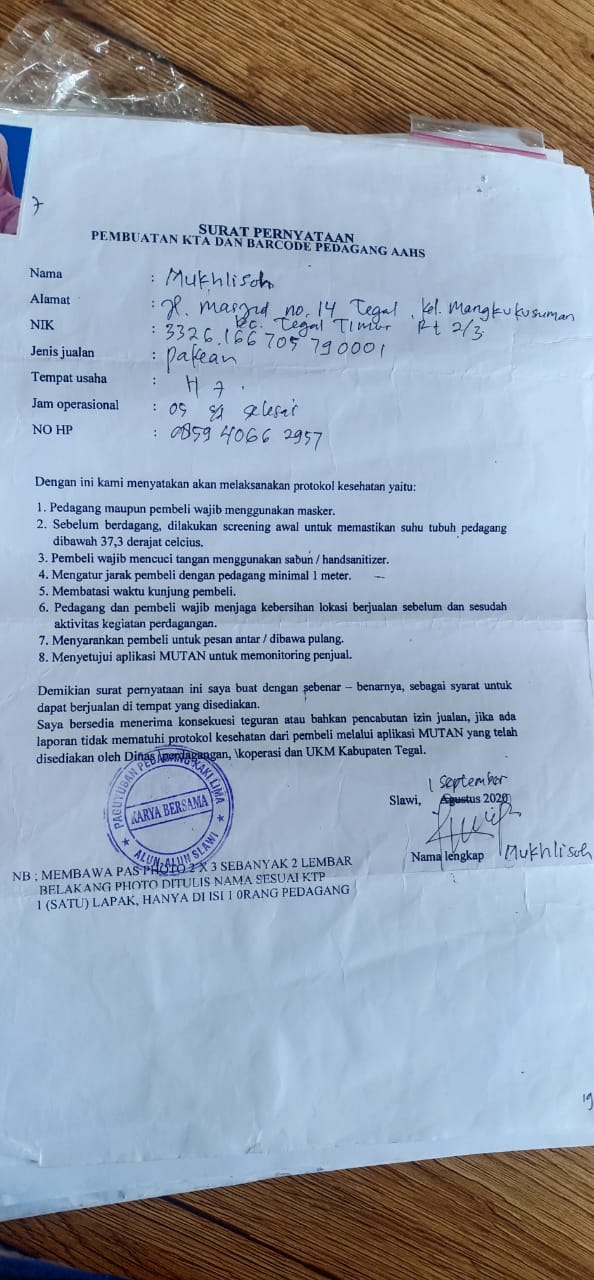 7
SURAT PERNYATAAN
PEMBUATAN KTA DAN BARCODE PEDAGANG AAHS
Nama : Mukhlisoh
Alamat : Jl. masjid no. 14 Tegal, Kel. Mangkukusuman
Kec. Tegal Timur Rt 2/3
NIK : 3326.166 705 790001
Jenis jualan : pakean
Tempat usaha : H 7.
Jam operasional : 05 sd selesai
NO HP : 0859 4066 2957
Dengan ini kami menyatakan akan melaksanakan protokol kesehatan yaitu:
1. Pedagang maupun pembeli wajib menggunakan masker.
2. Sebelum berdagang, dilakukan screening awal untuk memastikan suhu tubuh pedagang
dibawah 37,3 derajat celcius.
3. Pembeli wajib mencuci tangan menggunakan sabun / handsanitizer.
4. Mengatur jarak pembeli dengan pedagang minimal 1 meter.
5. Membatasi waktu kunjung pembeli.
6. Pedagang dan pembeli wajib menjaga kebersihan lokasi berjualan sebelum dan sesudah
aktivitas kegiatan perdagangan.
7. Menyarankan pembeli untuk pesan antar / dibawa pulang.
8. Menyetujui aplikasi MUTAN untuk memonitoring penjual.
Demikian surat pernyataan ini saya buat dengan sebenar – benarnya, sebagai syarat untuk
dapat berjualan di tempat yang disediakan.
Saya bersedia menerima konsekuesi teguran atau bahkan pencabutan izin jualan, jika ada
laporan tidak mematuhi protokol kesehatan dari pembeli melalui aplikasi MUTAN yang telah
disediakan oleh Dinas \perdagangan, \koperasi dan UKM Kabupaten Tegal.
1 September
Slawi, Agustus 2020
PAGUYUBAN PEDAGANG KAKI LIMA
KARYA BERSAMA
ALUN-ALUN SLAWI
Nama lengkap Mukhlisoh
NB : MEMBAWA PAS PHOTO 2 X 3 SEBANYAK 2 LEMBAR
BELAKANG PHOTO DITULIS NAMA SESUAI KTP
1 (SATU) LAPAK, HANYA DI ISI 1 0RANG PEDAGANG
19